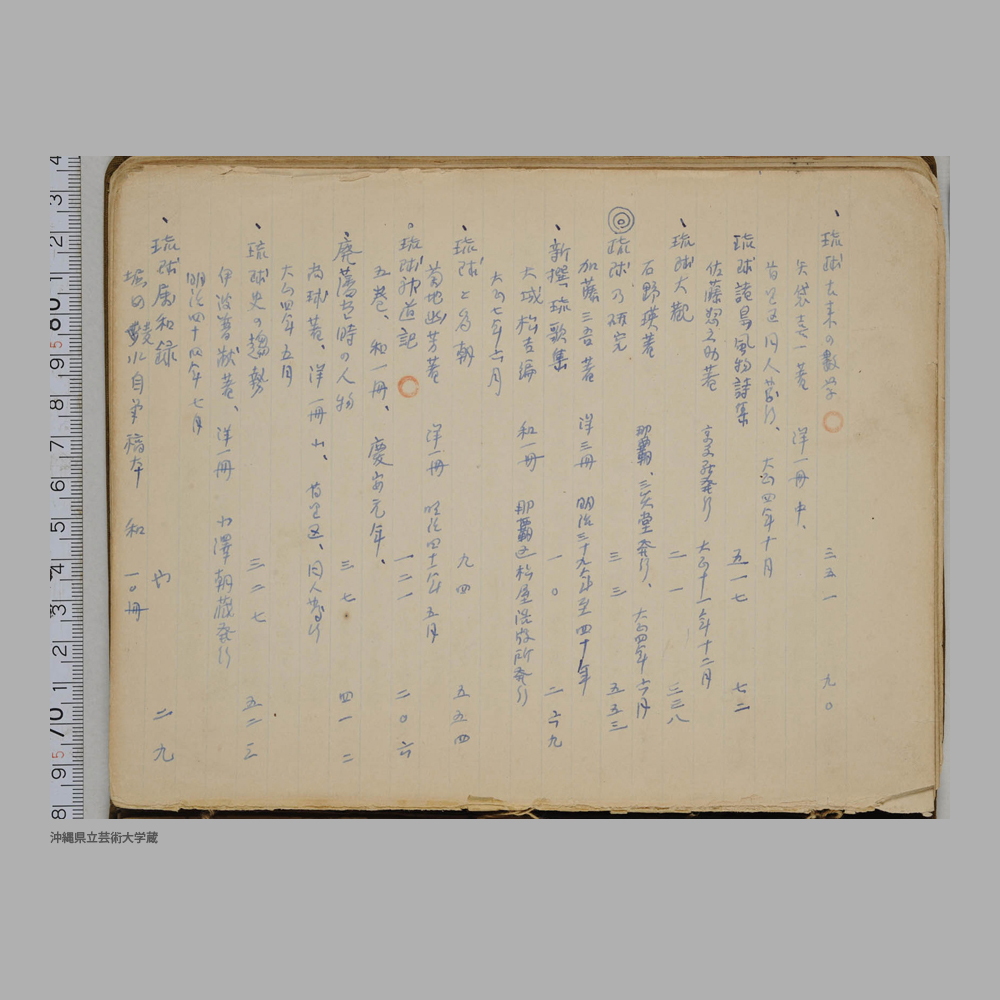 琉球古来の数学 三五一 九〇
矢袋喜一著 洋一冊 中、
首里区 同人発行、 大正四年十月
琉球諸島風物詩集 五一七 七二
佐藤惣之助著 京文社発行 大正十一年十二月
琉球大観 二一 三三八
石野瑛著 那覇、三笑堂発行、 大正四年六月
琉球乃研究 三三 五五三
加藤三吾著 洋三冊 明治三十九年至四十年
新撰、琉歌集 一〇 二六九
大城松吉編 和一冊 那覇区松屋活版所発行
大正七年六月
琉球と為朝 九四 五五四
菊地幽芳著 洋一冊 明治四十一年五月
琉球神道記 一二一 二〇六
五巻、和一冊、 慶安元年、
廃藩当時の人物 三七 四一二
尚球著、洋一冊 小、 首里区、同人発行
大正四年五月
琉球史の趨勢 三二七 五二三
伊波普猷著、洋一冊 小澤朝蔵発行
明治四十四年七月
琉球属和録 や 二九
堀田 自筆稿本 和 一〇冊
4 3 2 1 80 9 8 7 6 5 4 3 2 1 70 9 8
沖縄県立芸術大学蔵